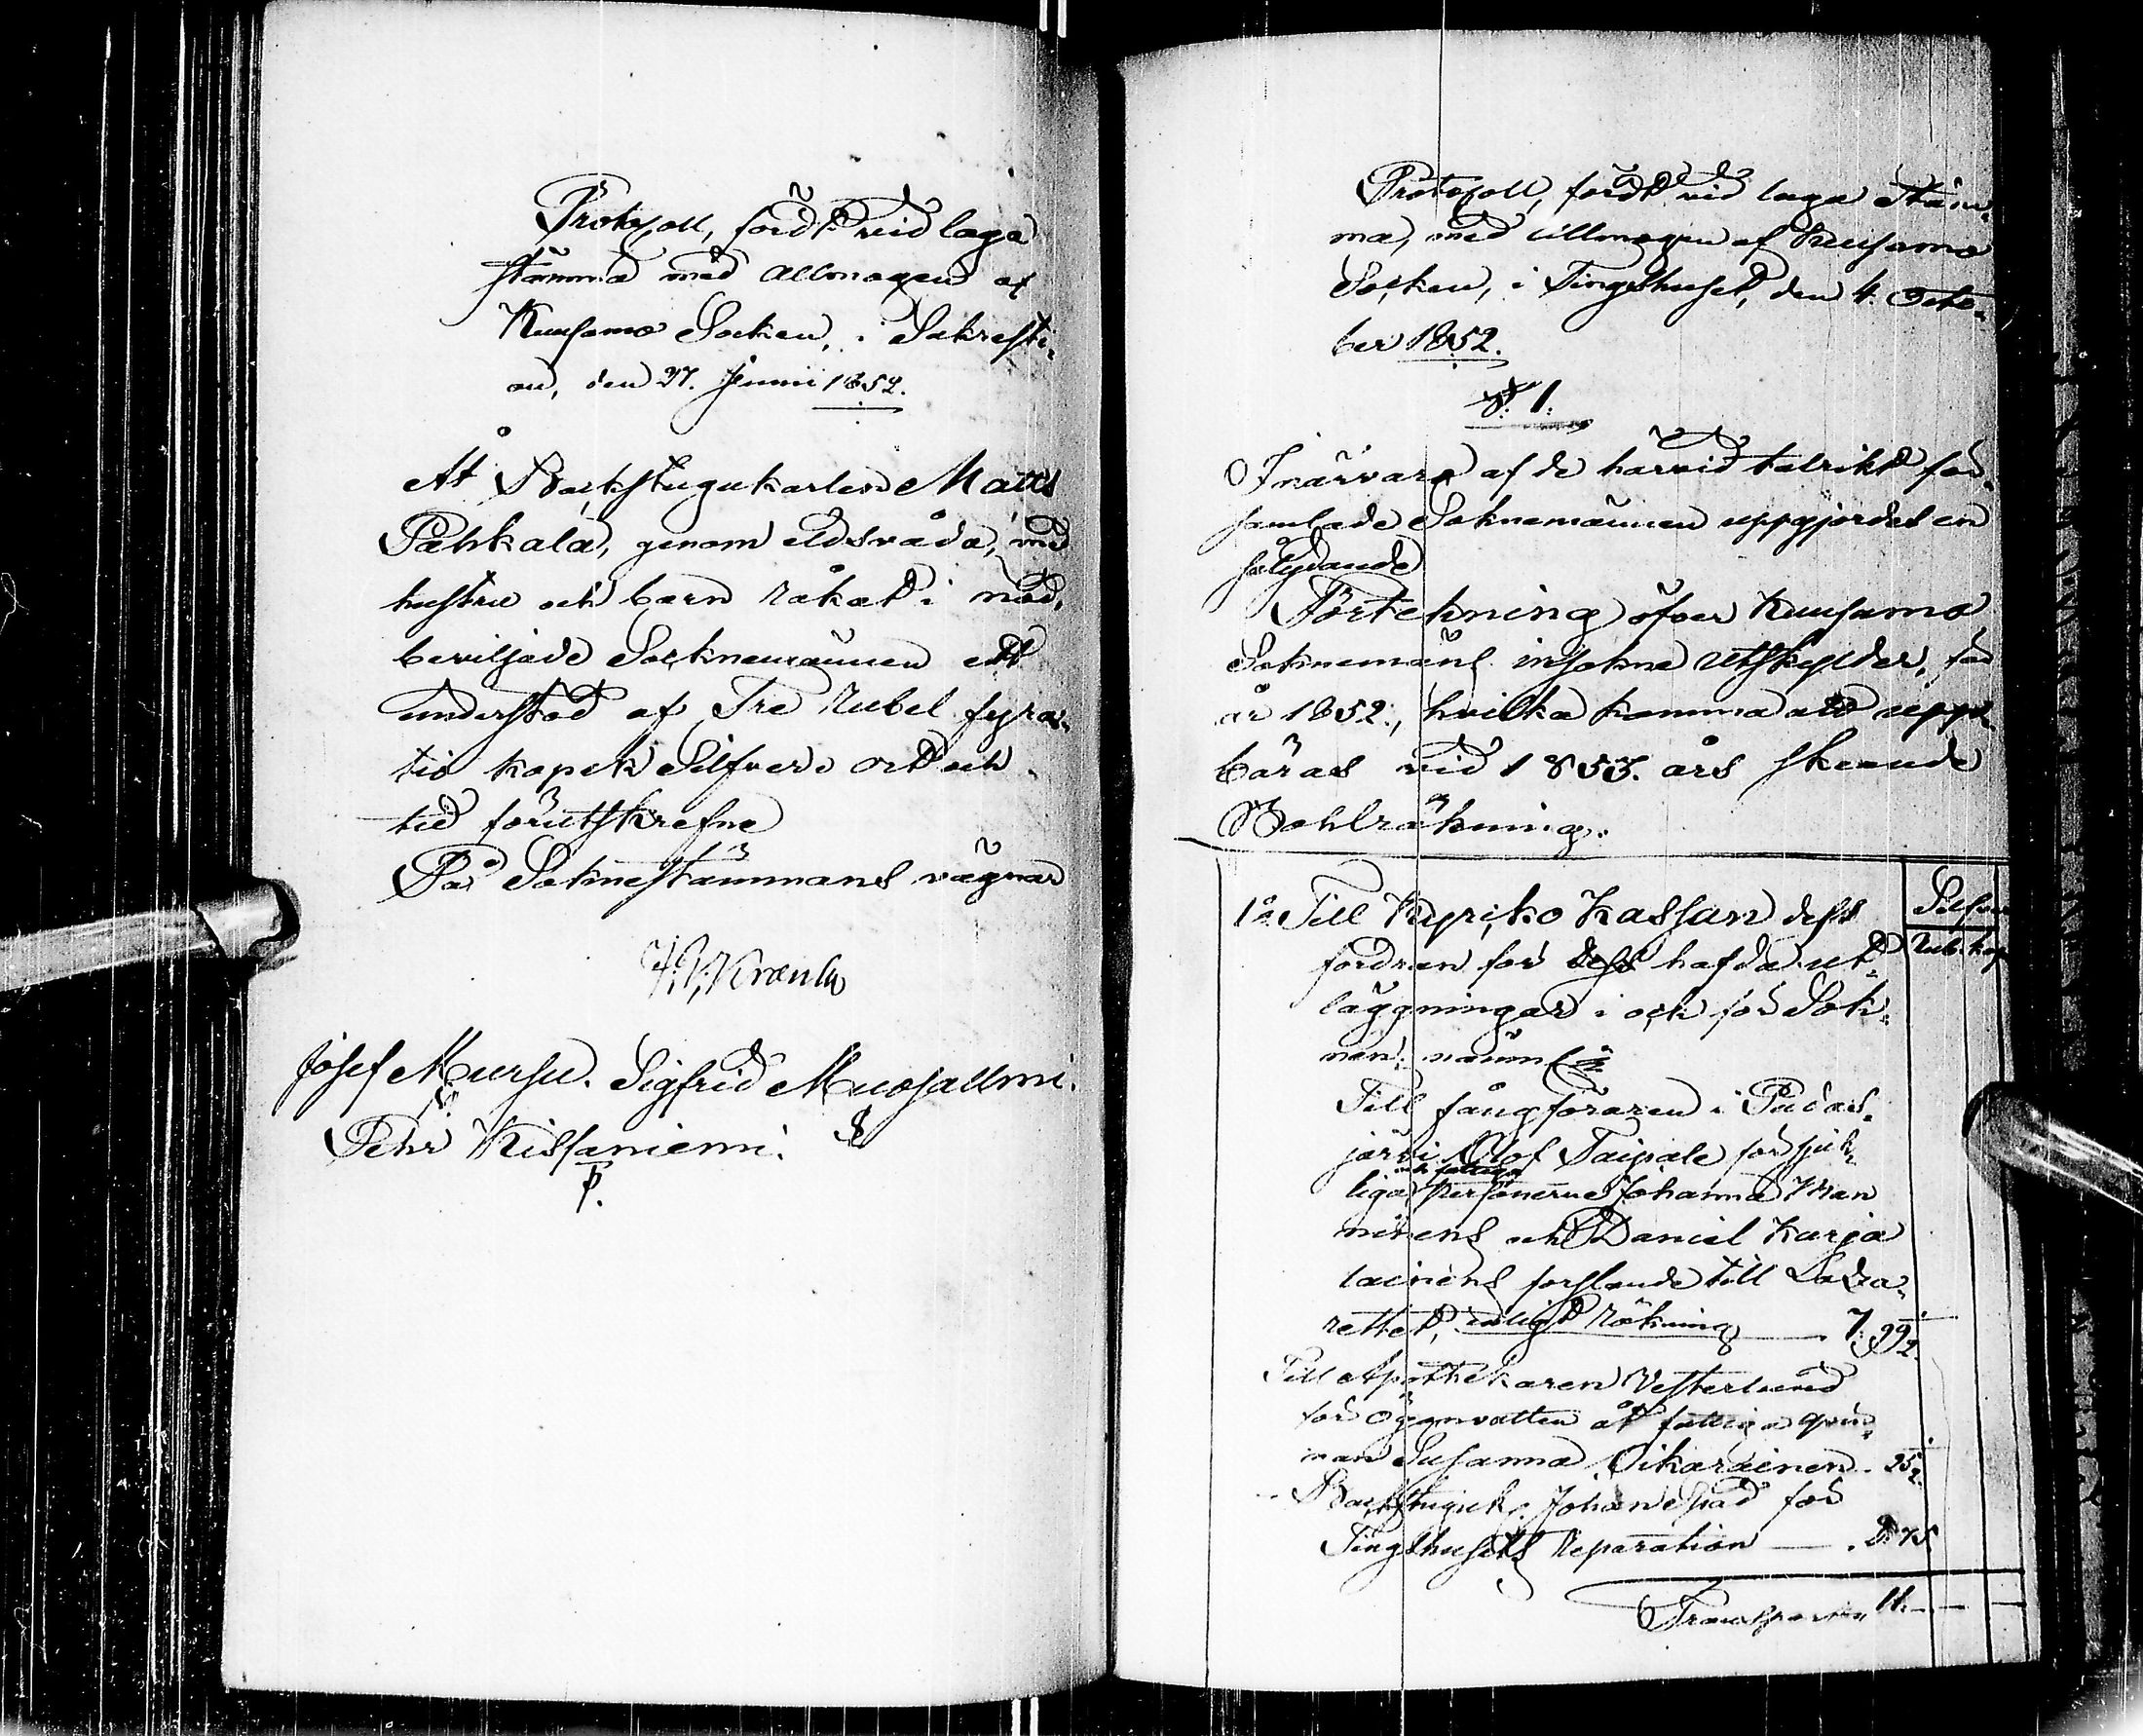 Protocoll, fördt vid laga
stämma med Allmogen af
Kuusamo Socken, i Sakresti-
an, den 27. Junii 1852.
Åt Backstugukarlen Matts
Pahkala, genom eldsvåda, med
hustru och barn råkat i nöd,
beviljade Socknemännen ett
understöd af Tre Rubel fyra-
tio kopek Silfver. Ort och
tid förutskrefne
På Soknestämmans vägnar
Josef Mursu. Sigfrid Muosalmi.
Pehr Kissaniemi.
P.
Protocoll, fördt vid laga Stäm-
ma, med Allmogen af Kuusamo
Socken, i Tingshuset, den 4. Octo-
ber 1852.
§. 1.
I närvaro af de härvid talrikt för-
samlade Soknemännen uppgjordes en
så lydande
Förtekning öfver Kuusamo
Soknemäns insokne utskylder, för
år 1852., hvilka komma att upp-
bäras vid 1853. års skeende
Bohlräkning.
Silfver
Rub. kop
1o Till Kyrko Kassan dess
fordran för dess hafda ut-
läggningar i och för Sok-
nen, nämnl.
Till fångföraren i Pudas-
järvi Olof Taipale för sjuk-
och fattiga
liga personerne Johanna Man
ninens och Daniel Karja
lainens forslande till Laza-
rettet, enligt räkning 7. 99 1/2.
Till Apothekaren Vesterlund
för ögonvatten åt fattiga qvin-
nan Susanna Oikarainen. 25 1/2.
Backstuguk. Johan för
Tingshusets Reparation 2. 75
Transporteras 11.